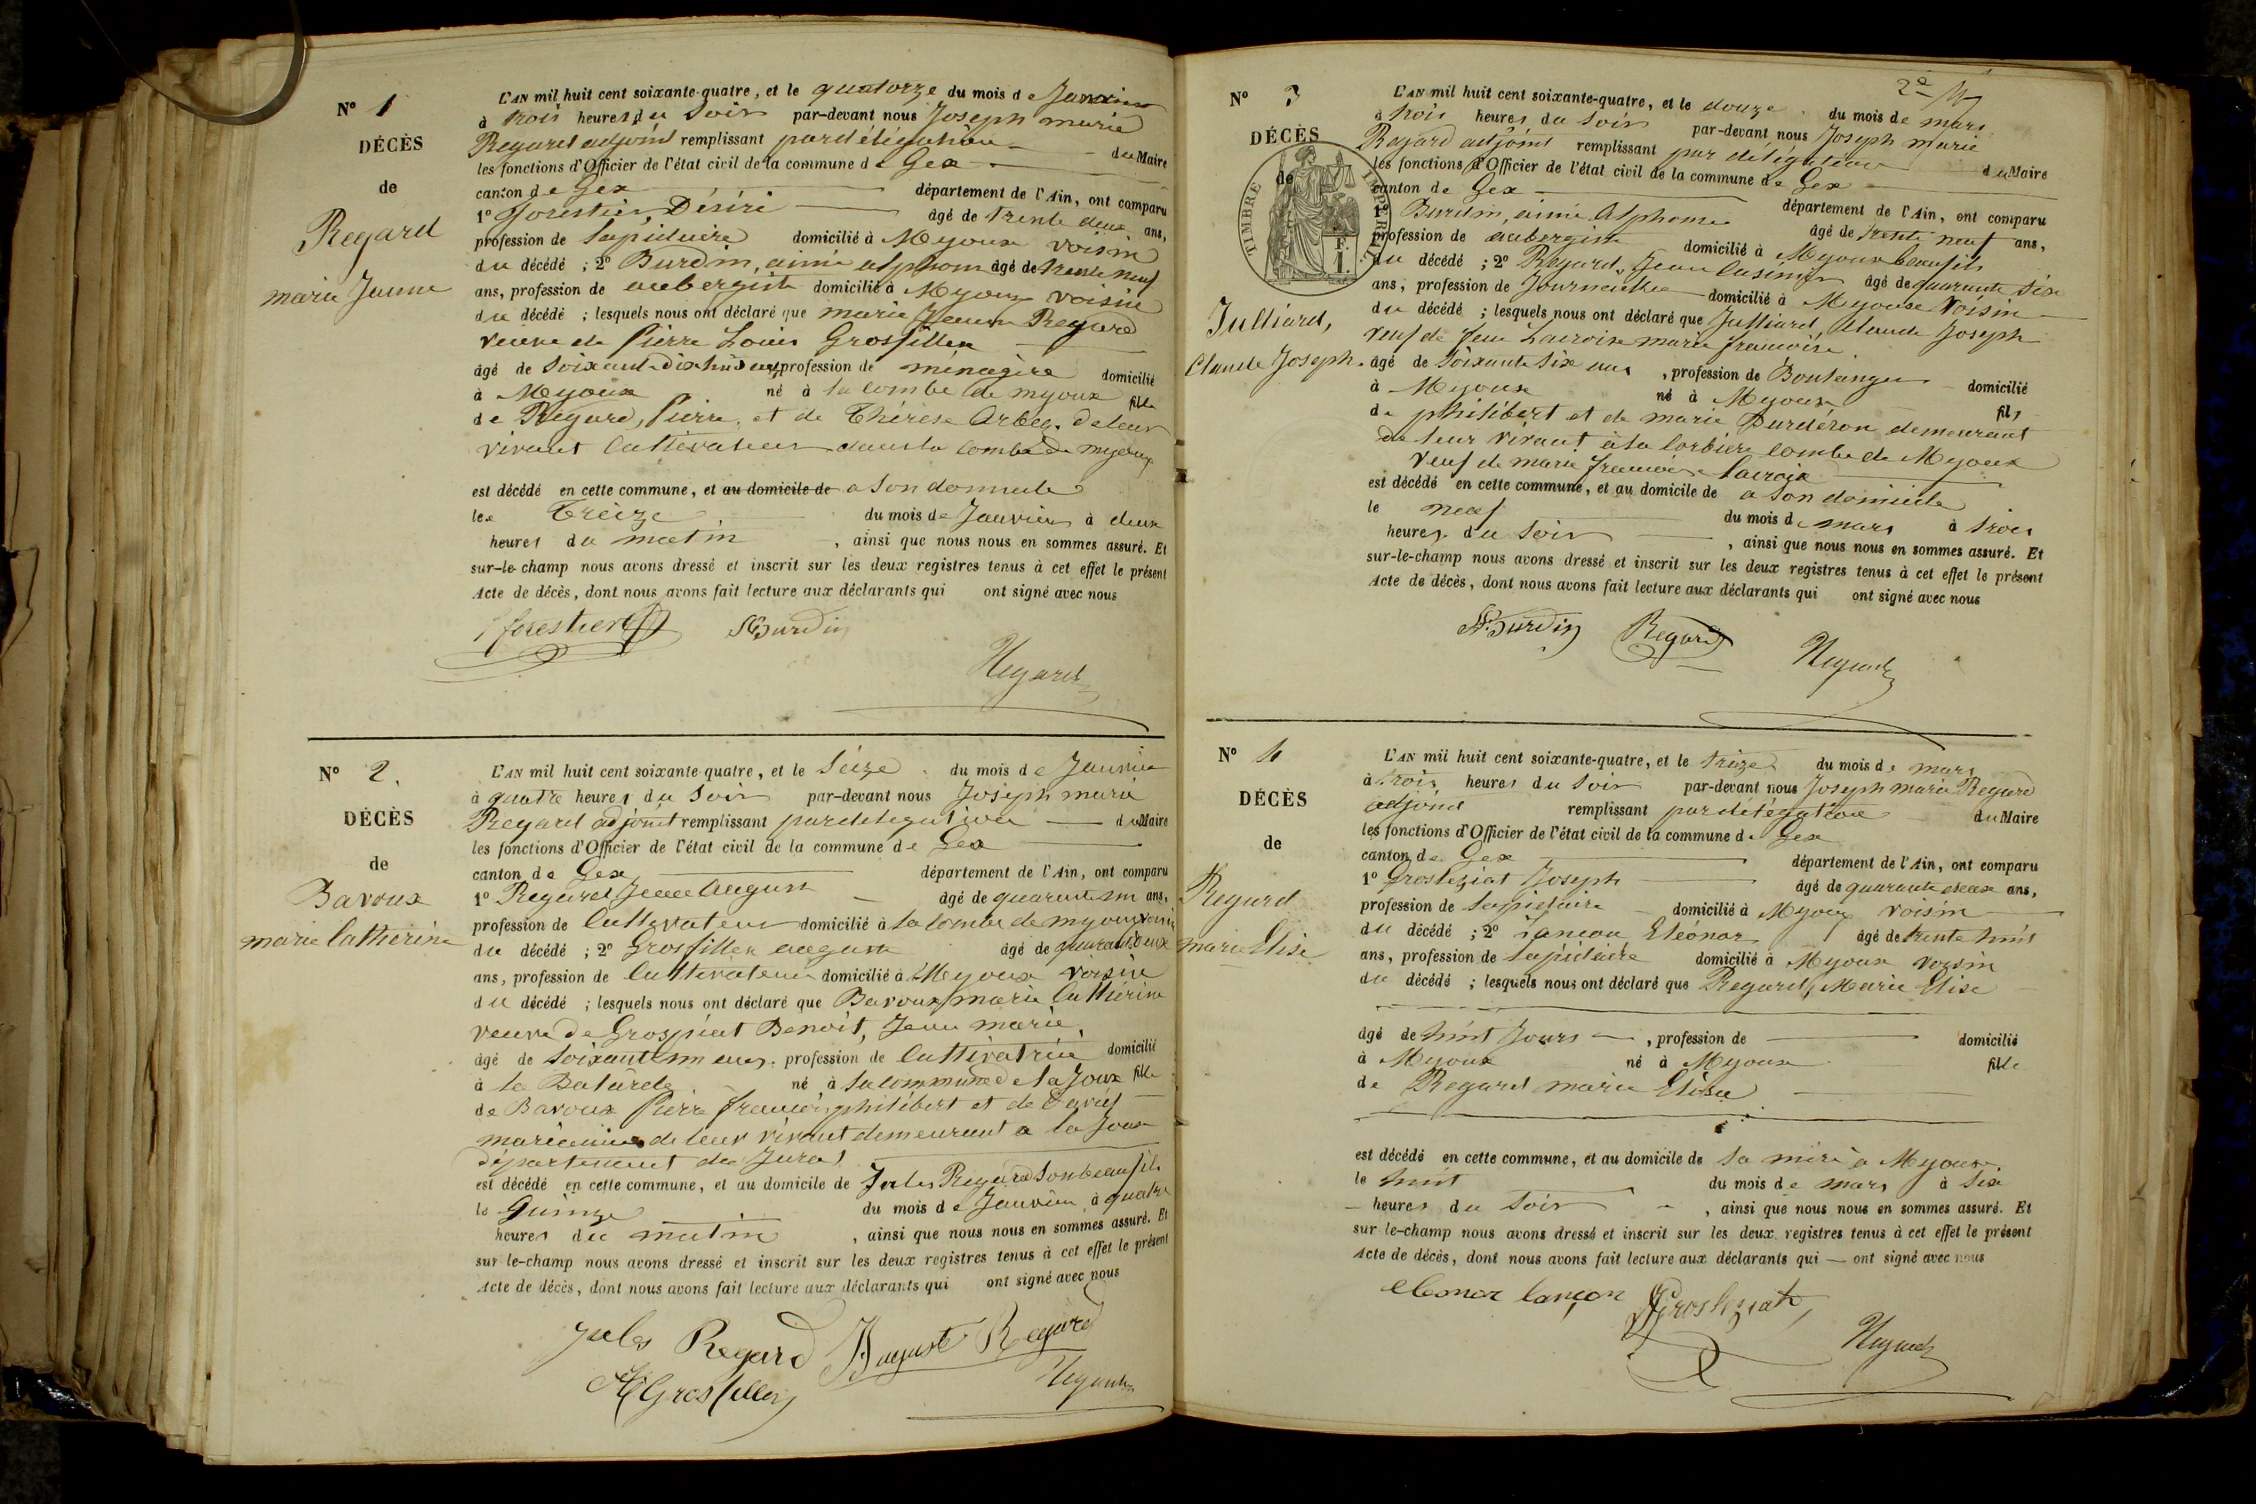 N° 1
DÉCÈS
de
Regard
marie Jeanne
L'AN mil huit cent soixante-quatre, et le quatorze du mois de Janvier
à trois heures du soir par-devant nous Joseph marie
Regard adjoint remplissant par délégation du Maire
les fonctions d'Officier de l'état civil de la commune de Gex
canton de Gex département de l'Ain, ont comparu
1° forestier, Désiré âgé de trente deux ans,
profession de lapidaire domicilié à Myoux voisin
du décédé ; 2° Burdin, aimé alphonse âgé de trente neuf
ans, profession de aubergiste domicilié à Myoux voisin
du décédé ; lesquels nous ont déclaré que marie Jeanne Regard
veuve de Pierre Louis Grosfillex
âgé de soixante dix huit ans, profession de ménagère domicilié
à Myoux né à la combe de myoux fille
de Regard, Pierre, et de Thérèse Arbez. de leur
vivant cultivateurs dans la combe de myoux
est décédé en cette commune, et au domicile de a son domicile
le Treize du mois de Janvier à deux
heures du matin, ainsi que nous nous en sommes assuré. Et
sur-le-champ nous avons dressé et inscrit sur les deux registres tenus à cet effet le présent
Acte de décès, dont nous avons fait lecture aux déclarants qui ont signé avec nous
forestier Burdin
Regard
N° 2.
DÉCÈS
de
Bavoux
marie Catherine
L'AN mil huit cent soixante-quatre, et le seize du mois de Janvier
à quatre heures du soir par-devant nous Joseph marie
Regard adjoint remplissant par délégation du Maire
les fonctions d'Officier de l'état civil de la commune de Gex
canton de Gex département de l'Ain, ont comparu
1° Regard Jean August âgé de quarante un ans,
profession de Cultivateur domicilié à la combe de myoux voisin
du décédé ; 2° Grosfillex august âgé de quarante deux
ans, profession de Cultivateur domicilié à Myoux voisin
du décédé ; lesquels nous ont déclaré que Bavoux, marie Cathérine
veuve de Grospiat Benoit, Jean marie,
âgé de soixante un ans, profession de Cultivatrice domicilié
à la né à la commune de la Joux fille
de Bavoux Pierre françois philibert et de David
marie de leur vivant demeurant a la Joux
département du Jura
est décédé en cette commune, et au domicile de Jules Regard son beau fils
le Quinze du mois de Janvier à quatre
heures du matin, ainsi que nous nous en sommes assuré. Et
sur le-champ nous avons dressé et inscrit sur les deux registres tenus à cet effet le présent
Acte de décès, dont nous avons fait lecture aux déclarants qui ont signé avec nous
Jules Regard J. Auguste Regard
Grosfillex Regard
2e
N° 3
DÉCÈS
de
TIMBRE IMPÉRIAL
Julliard,
Claude Joseph.
L'AN mil huit cent soixante-quatre, et le douze du mois de mars
à trois heures du soir par-devant nous Joseph marie
Regard adjoint remplissant par délégation du Maire
les fonctions d'Officier de l'état civil de la commune de Gex
canton de Gex département de l'Ain, ont comparu
1° Burdin, aimé Alphonse âgé de trente neuf ans,
profession de aubergiste domicilié à Myoux beau fils
du décédé ; 2° Regard, Jean Casimir âgé de quarante six
ans, profession de Journalier domicilié à Myoux voisin
du décédé ; lesquels nous ont déclaré que Julliard, Claude Joseph
veuf de feue Lacroix marie françoise
âgé de soixante six ans, profession de Boulanger domicilié
à Myoux né à Myoux fils
de philibert et de marie Burdéron demeurant
de leur vivant à la combe de Myoux
veuf de marie françoise Lacroix
est décédé en cette commune, et au domicile de a son domicile
le neuf du mois de mars à trois
heures du soir, ainsi que nous nous en sommes assuré. Et
sur-le-champ nous avons dressé et inscrit sur les deux registres tenus à cet effet le présent
Acte de décès, dont nous avons fait lecture aux déclarants qui ont signé avec nous
Burdin Regard Regard
N° 4
DÉCÈS
de
Regard
marie Elise
L'AN mil huit cent soixante-quatre, et le treize du mois de mars
à trois heures du soir par-devant nous Joseph marie Regard
adjoint remplissant par délégation du Maire
les fonctions d'Officier de l'état civil de la commune de Gex
canton de Gex département de l'Ain, ont comparu
1° Grosleziat Joseph âgé de quarante deux ans,
profession de lapidaire domicilié à Myoux voisin
du décédé ; 2° Lançon Eléonor âgé de trente huit
ans, profession de lapidaire domicilié à Myoux voisin
du décédé ; lesquels nous ont déclaré que Regard, Marie Elise
âgé de huit Jours, profession de domicilié
à Myoux né à Myoux fille
de Regard marie Elisa
est décédé en cette commune, et au domicile de sa mère à Myoux
le huit du mois de mars à six
heures du soir, ainsi que nous nous en sommes assuré. Et
sur le-champ nous avons dressé et inscrit sur les deux registres tenus à cet effet le présent
Acte de décès, dont nous avons fait lecture aux déclarants qui ont signé avec nous
Eleonor Lançon Grosleziat
Regard